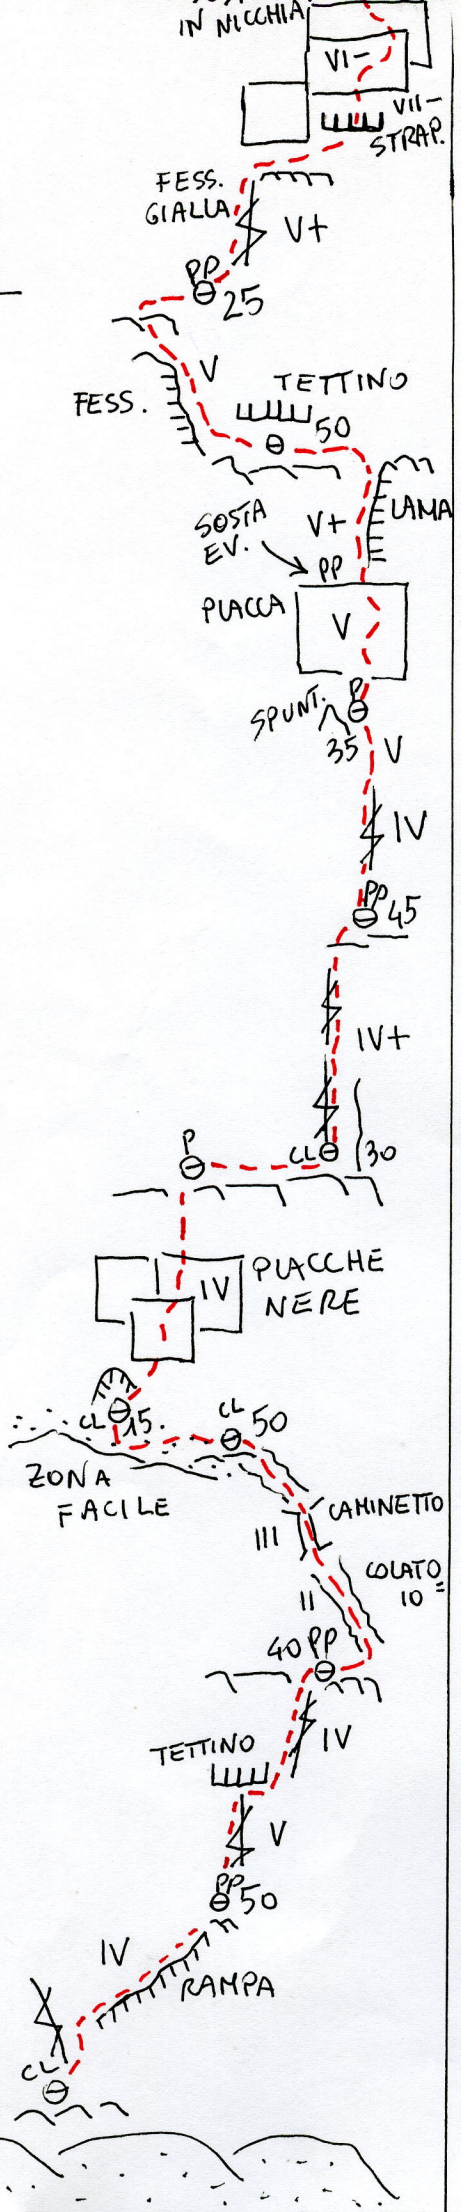 IN NICCHIA
VI-
VII-
STRAP.
FESS.
GIALLA
V+
PP
25
V
TETTINO
FESS.
50
LAMA
SOSTA
EV.
V+
PP
PLACCA
V
P
SPUNT.
35
V
IV
PP
45
IV+
P
CL
30
IV
PLACCHE
NERE
CL
15.
CL
50
ZONA
FACILE
CAMINETTO
III
COLATO
10=
II
40 PP
IV
TETTINO
V
PP
50
IV
RAMPA
CL